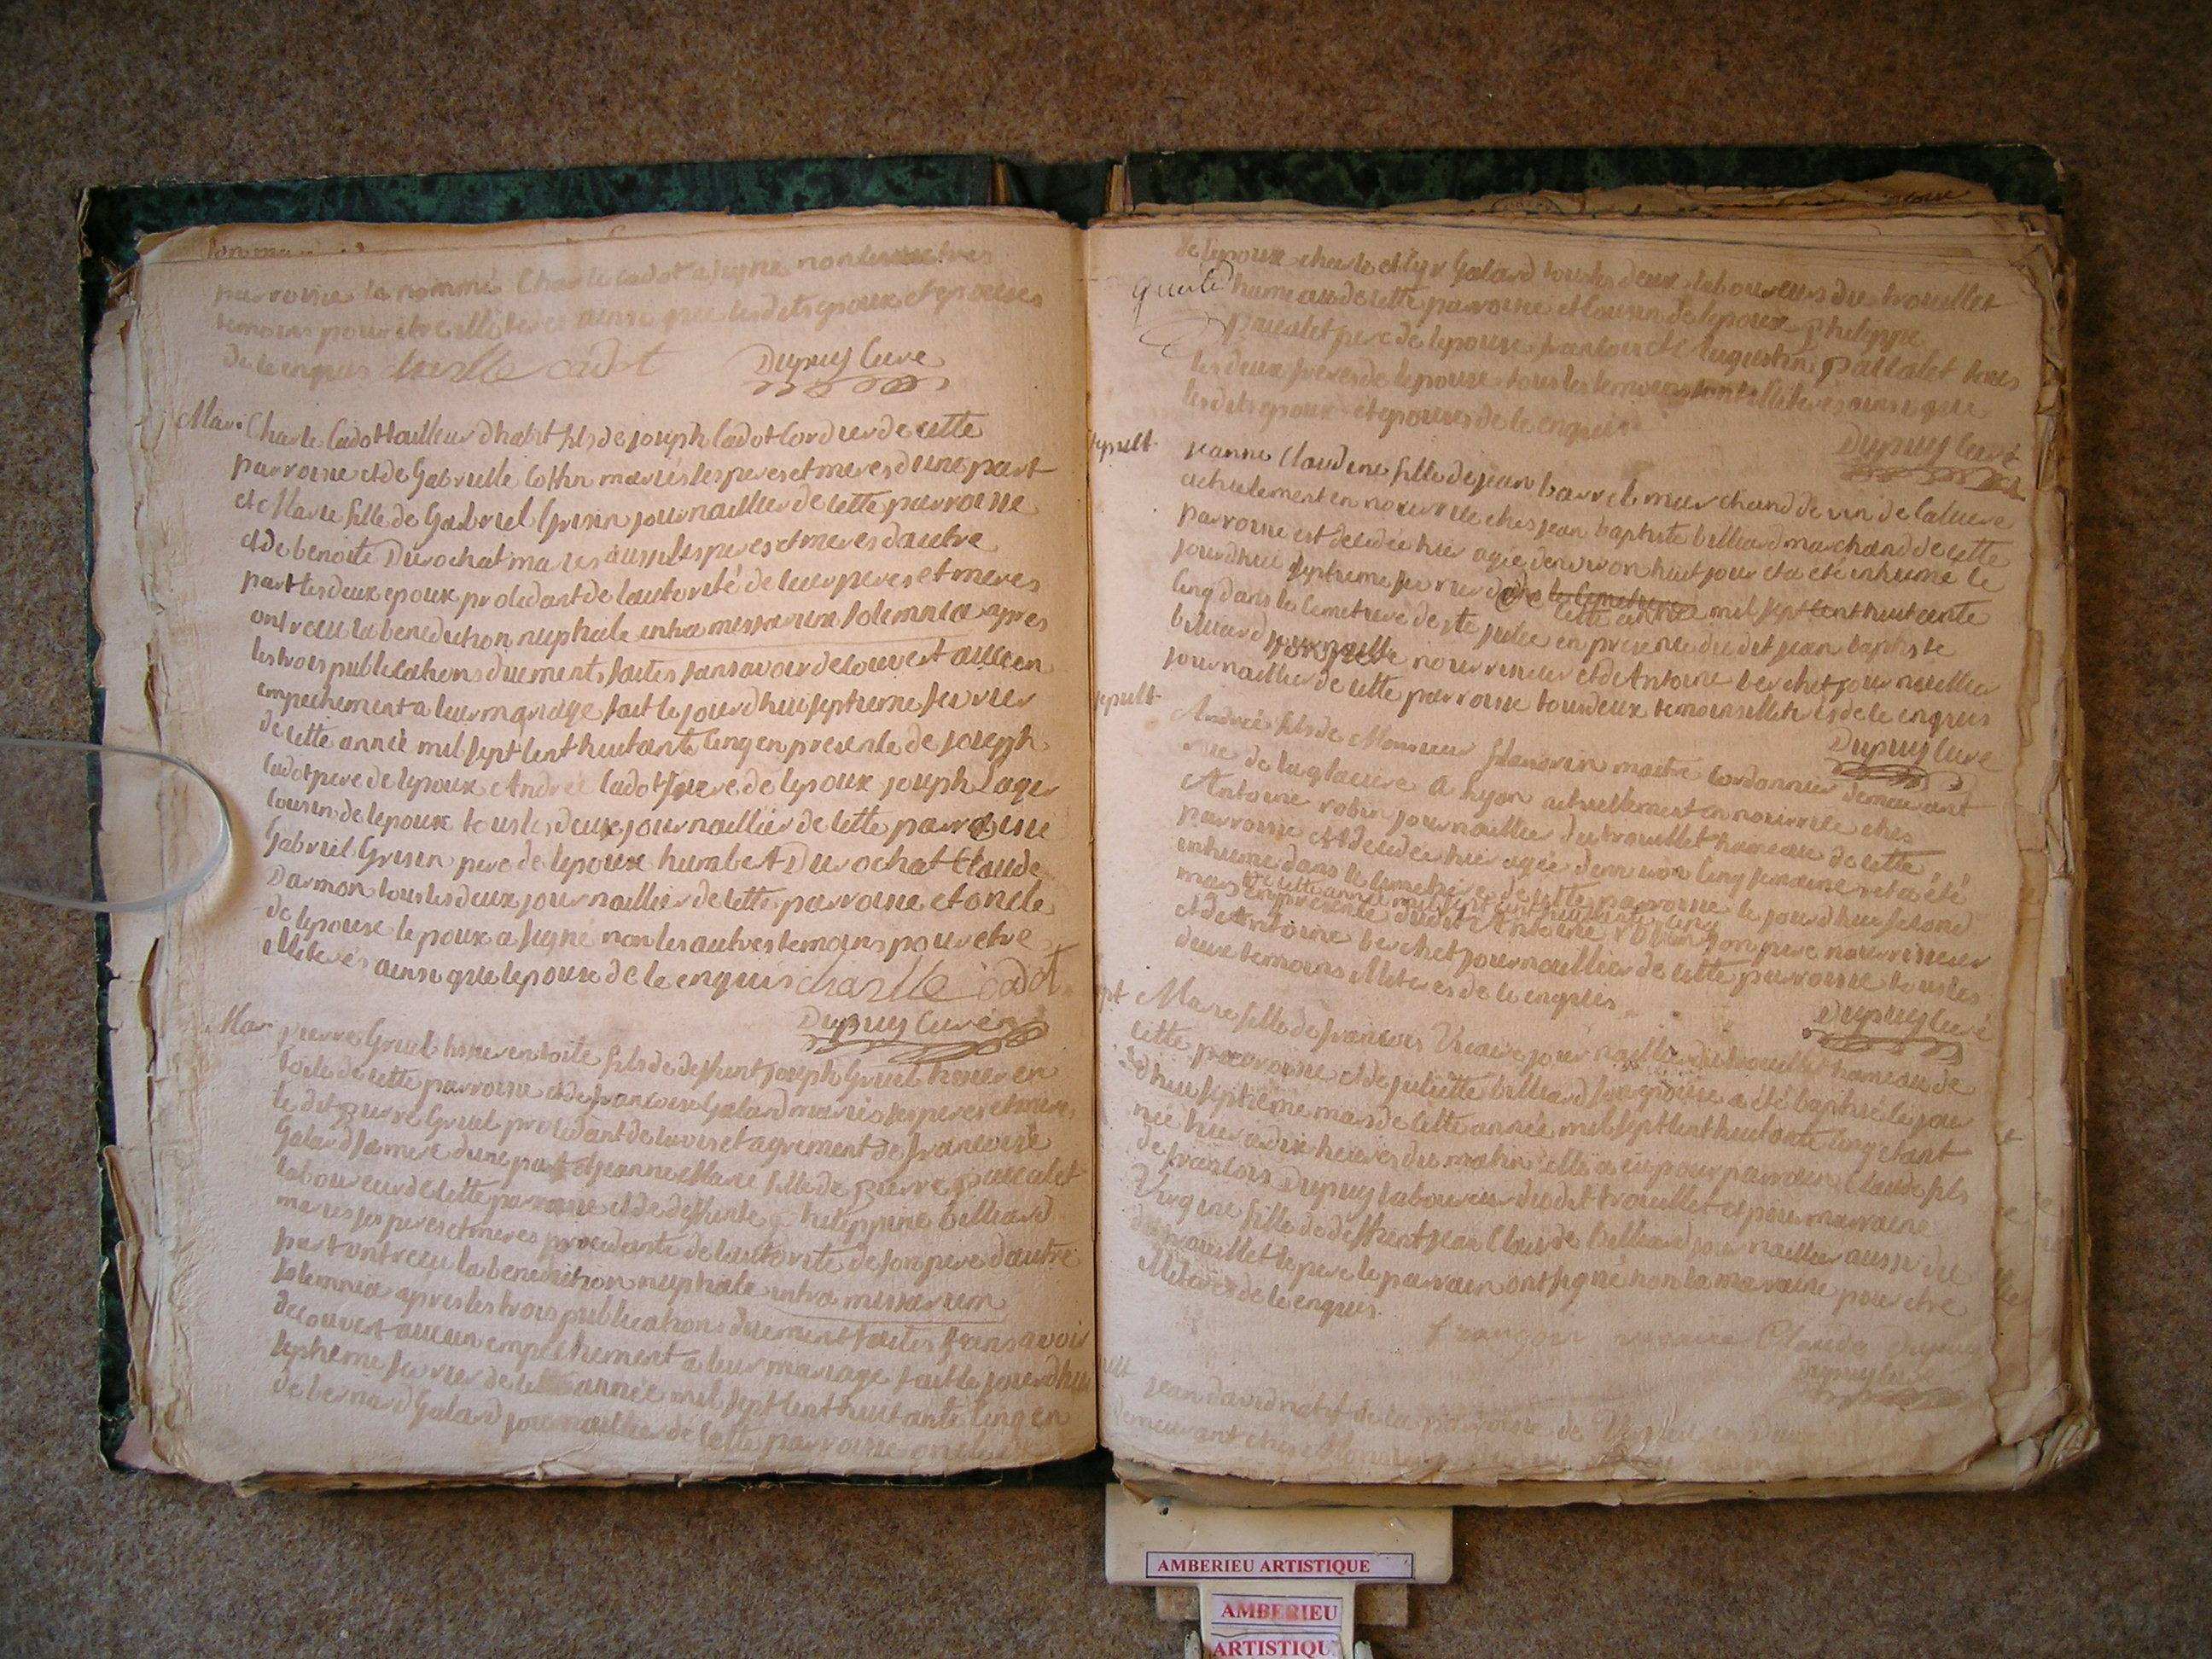 parroisse le nommé Charle Cadot a signé non les autres
temoins pour etre illiteres ainsi que lesdits epoux et epouses
de ce enquis charlle cadot Dupuy Curé
Mar. Charle Cadot tailleur dhabit fils de joseph Cadot Cordier de cette
parroisse et de Gabrielle Cottin mariés ses peres et meres dune part
et Marie fille de Gabriel Grisin journaillier de cette parroisse
et de benoite Durochat mariés aussi ses peres et meres dautre
part les deux epoux procedant de lautorité de leur peres et meres
ont recu la benediction nuptiale intra missarum solemnia apres
les trois publications duement faites sans avoir decouvert aucun
empechement a leur mariage fait le jourdhui septieme fevrier
de cette année mil sept cent huitante cinq en presence de joseph
Cadot pere de lepoux André Cadot frere de lepoux joseph
cousin de lepoux tous les deux journaillier de cette parroisse
Gabriel Grisin pere de lepouse humbert Durochat Claude
Darmon tous les deux journaillier de cette parroisse et oncle
de lepouse lepoux a signé non les autres temoins pour etre
illiterés ainsi que lepouse de ce enquis charlle cadot
Dupuy Curé
Mar pierre Gruel tissier en toile fils de deffunt joseph Gruel tissier en
toile de cette parroisse et de francoise Galard mariés ses peres et meres
le dit pierre Gruel procedant de lavis et agrement de francoise
Galard sa mere dune part et jeanne Marie fille de pierre paccalet
laboureur de cette parroisse et de deffunte philippine billiard
mariés ses peres et meres procedante de lautorité de son pere dautre
part ont recu la benediction nuptiale intra missarum
solemnia apres les trois publications duement faites sans avoir
decouvert aucun empechement a leur mariage fait le jourdhui
septieme fevrier de cette année mil sept cent huitante cinq en
de bernard Galard journaillier de cette parroisse oncle
de lepoux charle et Galard tous les deux laboureurs du trouillet
hameau de cette parroisse et cousin de lepoux philippe
paccalet pere de lepouse francois et augustin paccalet tous
les deux freres de lepouse tous les temoins sont illiterés ainsi que
lesdits epoux et epouses de ce enquis
Dupuy Curé
sepult jeanne Claudine fille de jean barret marchand de vin de
actuelement en nourrice ches jean baptiste billiard marchand de cette
parroisse est decedée hier agée denviron huit jour et a été inhumé le
jourdhui septieme fevrier de cette année mil sept cent huitante
cinq dans le cemetiere de ste julie en presence du dit jean baptiste
billiard nourrisseur et de Antoine berchet journaillier
journaillier de cette parroisse tous deux temoins illiterés de ce enquis
Dupuy Curé
sepult André fils de Monsieur flandrin maitre Cordonnier demeurant
rue de la glaciere a lyon actuellement en nourrice ches
Antoine robin journaillier du trouillet hameau de cette
parroisse est decedé hier agée denviron cinq semaines et a été
inhumé dans le cemetiere de cette parroisse le jourdhui second
mars de cette année mil sept cent huitante cinq
en presence du dit Antoine robin son pere nourrisseur
et de Antoine berchet journaillier de cette parroisse tous les
deux temoins illiterés de ce enquis
Dupuy Curé
Marie fille de francois Vicaire journaillier du trouillet hameau de
cette parroisse et de juliette billiard son epouse a été baptisé le jour
dhui septieme mars de cette année mil sept cent huitante cinq etant
née hier a dix heures du matin elle a eu pour parrain Claude fils
de francois Dupuy laboureur du dit trouillet et pour marraine
Virgine fille de deffunt jean Claude billiard journaillier aussi du
trouillet le pere le parrain ont signé non la marraine pour etre
illiterés de ce enquis.
françois vicaire Claude dupuy
dupuy curé
jean david natif de la paroisse de
demeurant ches Monsieur
AMBERIEU ARTISTIQUE
AMBERIEU
ARTISTIQU